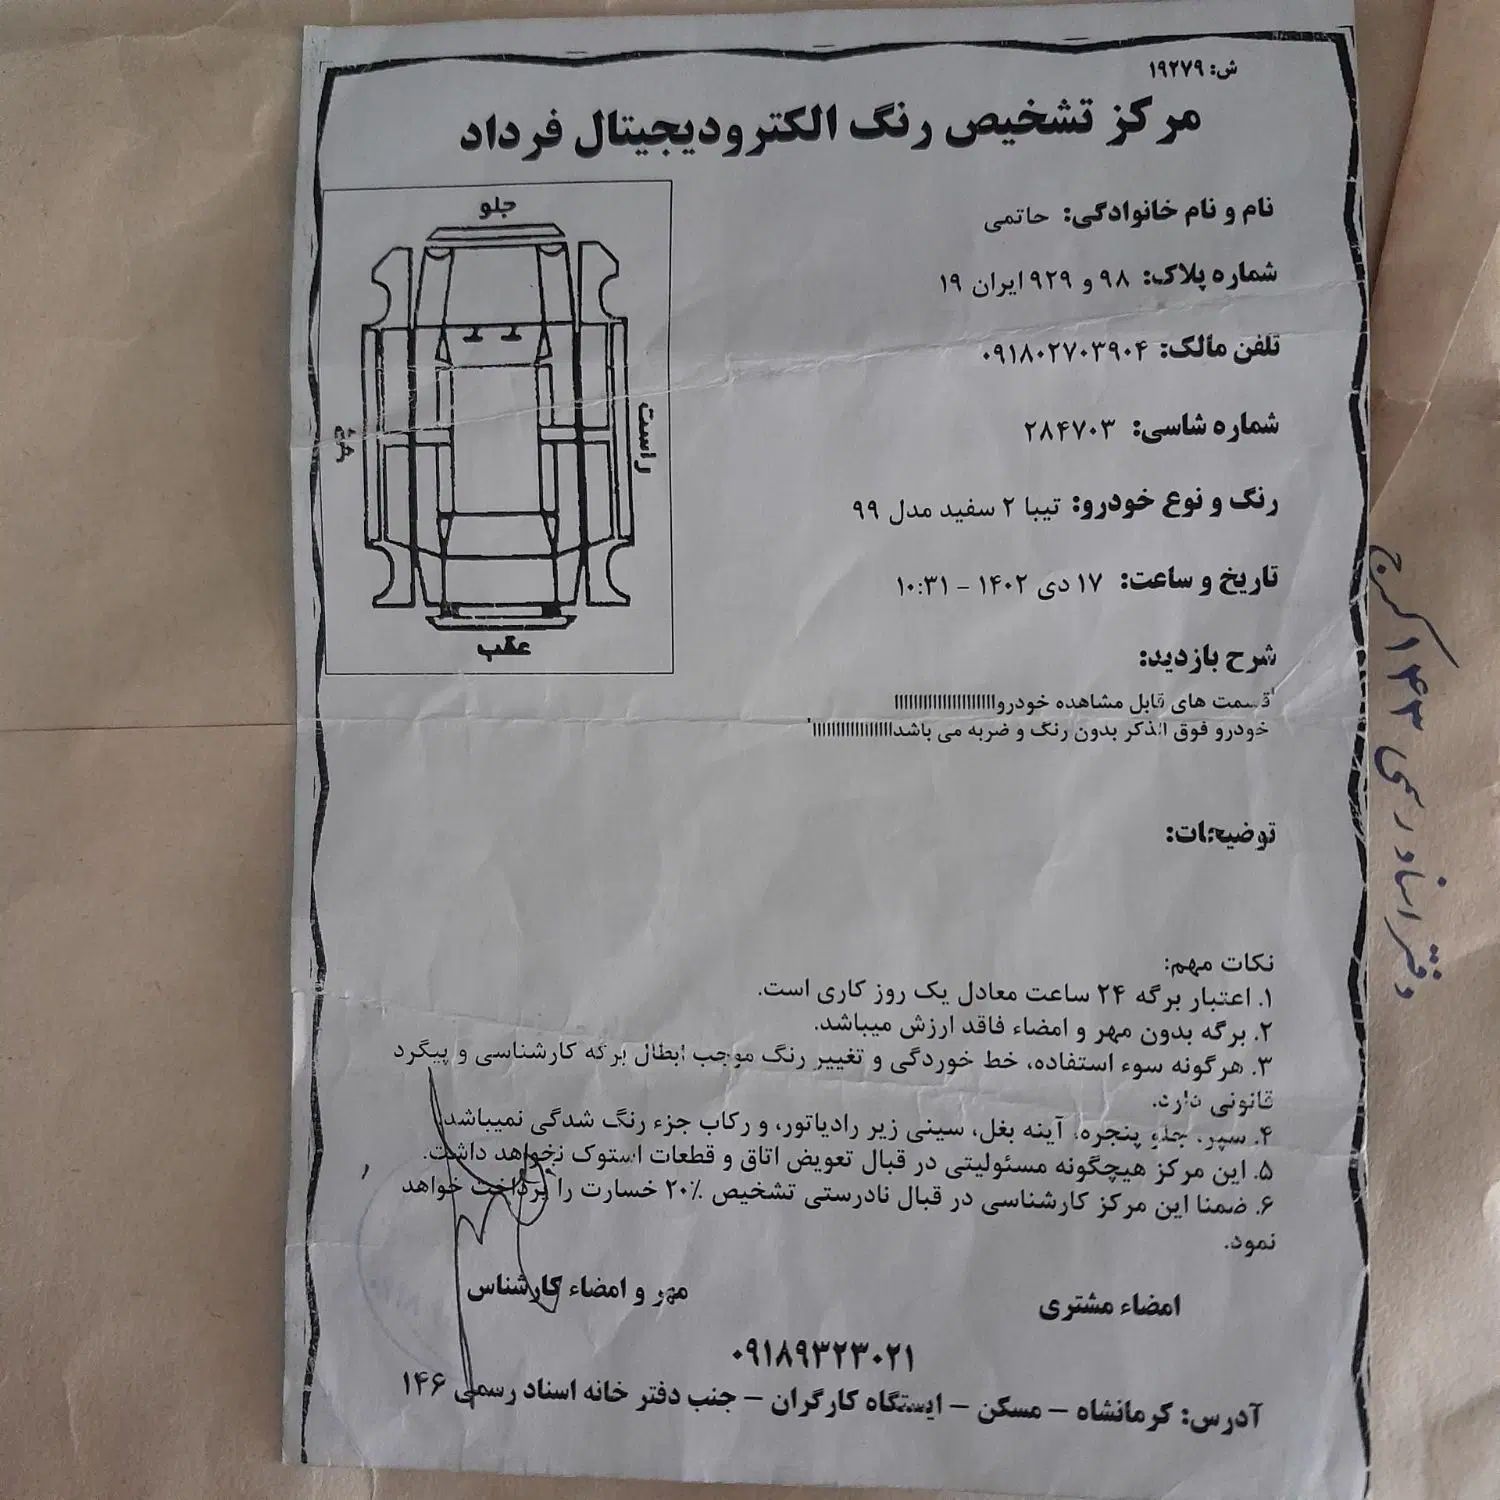 ش: ۱۹۲۷۹
مرکز تشخیص رنگ الکترودیجیتال فرداد
نام و نام خانوادگی: حاتمی
شماره پلاک: ۹۸ و ۹۲۹ ایران ۱۹
تلفن مالک: ۰۹۱۸۰۲۷۰۳۹۰۴
شماره شاسی: ۲۸۴۷۰۳
رنگ و نوع خودرو: تیبا ۲ سفید مدل ۹۹
تاریخ و ساعت: ۱۷ دی ۱۴۰۲ - ۱۰:۳۱
شرح بازدید:
قسمت های قابل مشاهده خودرو
خودرو فوق الذکر بدون رنگ و ضربه می باشد
جلو
راست
عقب
توضیحات:
نکات مهم:
۱. اعتبار برگه ۲۴ ساعت معادل یک روز کاری است.
۲. برگه بدون مهر و امضاء فاقد ارزش میباشد.
۳. هرگونه سوء استفاده، خط خوردگی و تغییر رنگ موجب ابطال برگه کارشناسی و پیگرد
قانونی دارد.
۴. سپر، جلو پنجره، آینه بغل، سینی زیر رادیاتور، و رکاب جزء رنگ شدگی نمیباشد.
۵. این مرکز هیچگونه مسئولیتی در قبال تعویض اتاق و قطعات استوک نخواهد داشت.
۶. ضمنا این مرکز کارشناسی در قبال نادرستی تشخیص ۲۰٪ خسارت را پرداخت خواهد
نمود.
امضاء مشتری
مهر و امضاء کارشناس
۰۹۱۸۹۳۲۳۰۲۱
آدرس: کرمانشاه - مسکن - ایستگاه کارگران - جنب دفتر خانه اسناد رسمی ۱۴۶
دفتر اسناد رسمی ۱۴۳ کرج